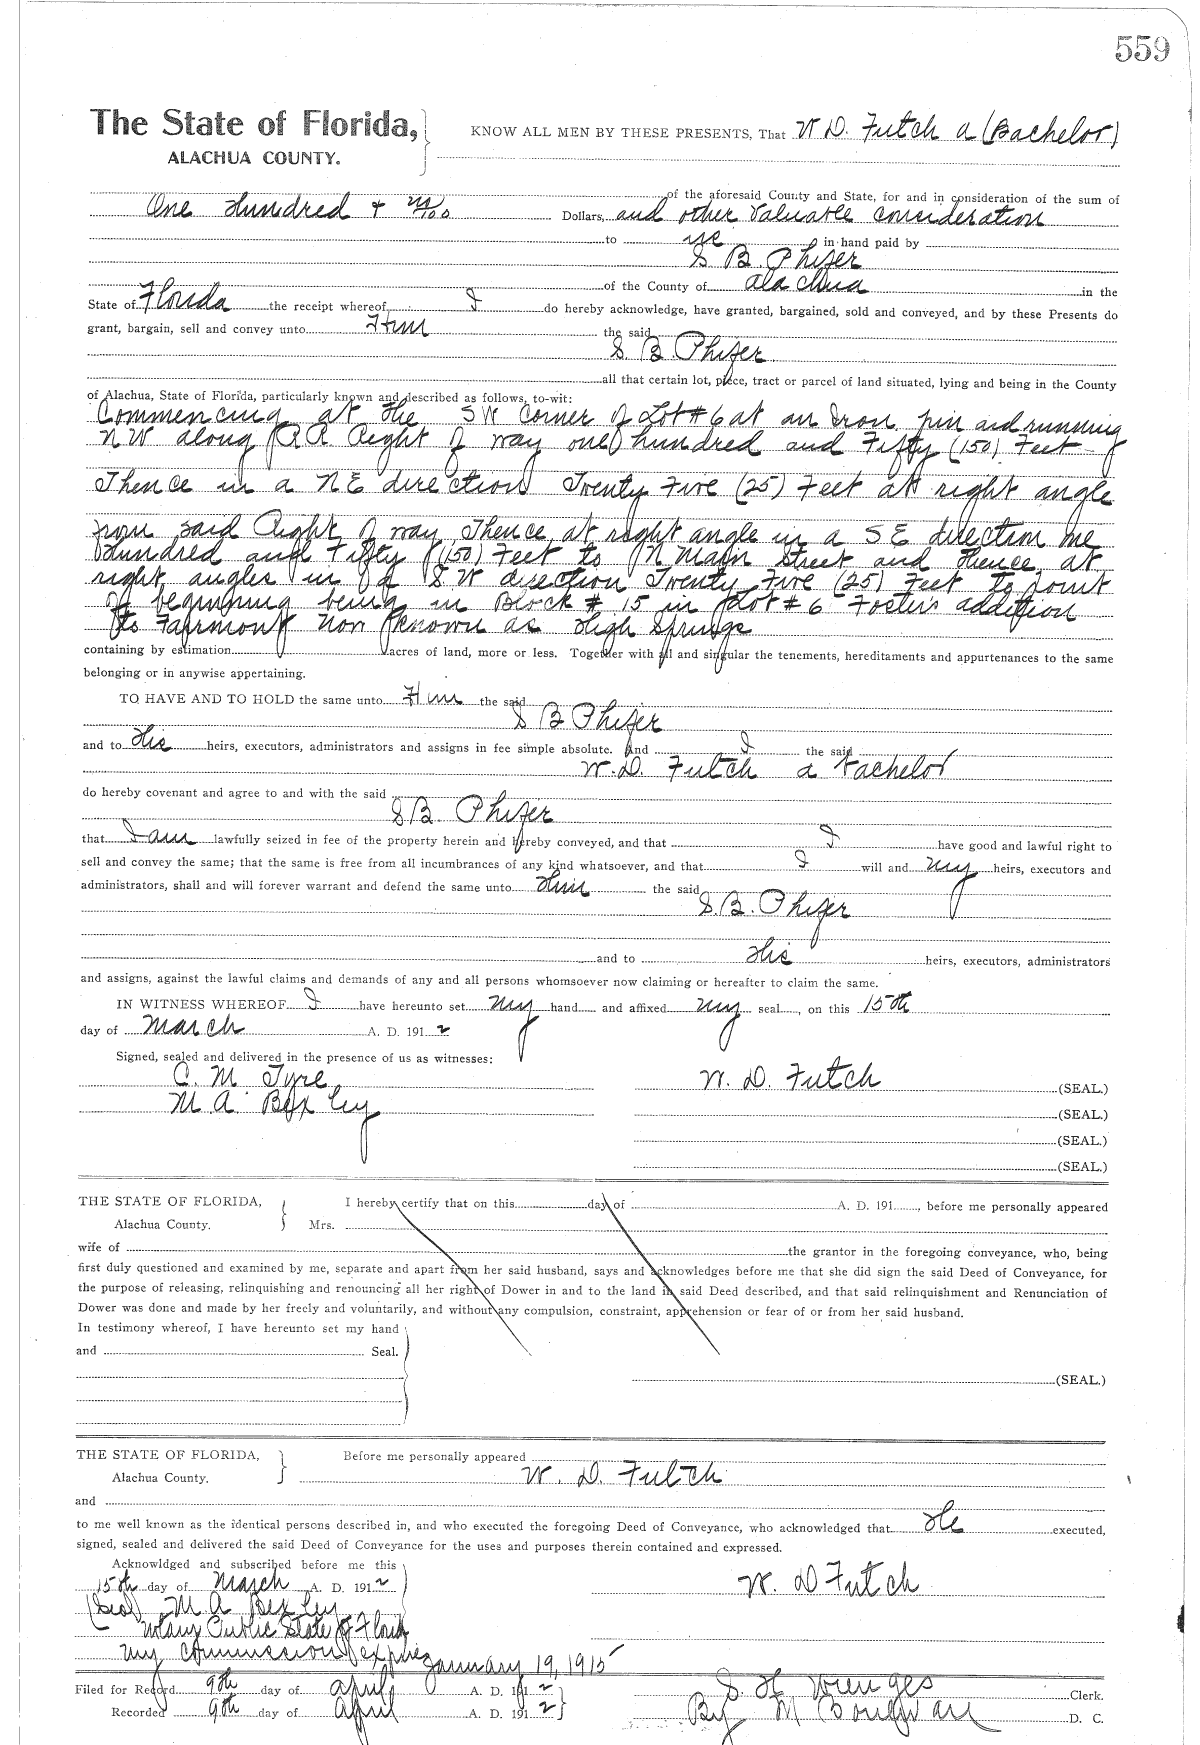 559
The State of Florida,
ALACHUA COUNTY.
KNOW ALL MEN BY THESE PRESENTS, That W. D. Futch a (Bachelor)
of the aforesaid County and State, for and in consideration of the sum of
One Hundred + no/100 Dollars, and other valuable consideration
to me in hand paid by
S B Phifer
of the County of Alachua in the
State of Florida the receipt whereof I do hereby acknowledge, have granted, bargained, sold and conveyed, and by these Presents do
grant, bargain, sell and convey unto Him the said
S B. Phifer
all that certain lot, piece, tract or parcel of land situated, lying and being in the County
of Alachua, State of Florida, particularly known and described as follows, to-wit:
Commencing at the SW Corner of Lot # 6 at an Iron pin and running
NW along R R Right of way one hundred and Fifty (150) Feet
Thence in a NE direction Twenty Five (25) Feet at right angle
from said Right of way, Thence at right angle in a SE direction one
Hundred and Fifty (150) Feet to N Main Street and thence at
right angles in a S W direction Twenty Five (25) Feet to point
of beginning being in Block # 15 in Lot # 6 Fosters addition
to Fairmont now known as High Springs
containing by estimation acres of land, more or less. Together with all and singular the tenements, hereditaments and appurtenances to the same
belonging or in anywise appertaining.
TO HAVE AND TO HOLD the same unto Him the said
S B Phifer
and to His heirs, executors, administrators and assigns in fee simple absolute. And I the said
W. D. Futch a Bachelor
do hereby covenant and agree to and with the said
S B. Phifer
that I am lawfully seized in fee of the property herein and hereby conveyed, and that I have good and lawful right to
sell and convey the same; that the same is free from all incumbrances of any kind whatsoever, and that I will and my heirs, executors and
administrators, shall and will forever warrant and defend the same unto Him the said
S. B. Phifer
and to His heirs, executors, administrators
and assigns, against the lawful claims and demands of any and all persons whomsoever now claiming or hereafter to claim the same.
IN WITNESS WHEREOF I have hereunto set my hand and affixed my seal, on this 15th
day of March A. D. 1912
Signed, sealed and delivered in the presence of us as witnesses:
C. M Tyre
M. A. Bexley
W. D. Futch (SEAL.)
(SEAL.)
(SEAL.)
(SEAL.)
THE STATE OF FLORIDA,
Alachua County.
I hereby certify that on this day of A. D. 191 , before me personally appeared
Mrs.
wife of the grantor in the foregoing conveyance, who, being
first duly questioned and examined by me, separate and apart from her said husband, says and acknowledges before me that she did sign the said Deed of Conveyance, for
the purpose of releasing, relinquishing and renouncing all her right of Dower in and to the land in said Deed described, and that said relinquishment and Renunciation of
Dower was done and made by her freely and voluntarily, and without any compulsion, constraint, apprehension or fear of or from her said husband.
In testimony whereof, I have hereunto set my hand
and Seal.
(SEAL.)
THE STATE OF FLORIDA,
Alachua County.
Before me personally appeared
W. D. Futch
and
to me well known as the identical persons described in, and who executed the foregoing Deed of Conveyance, who acknowledged that He executed,
signed, sealed and delivered the said Deed of Conveyance for the uses and purposes therein contained and expressed.
Acknowldged and subscribed before me this
15th day of March A. D. 1912
W. D Futch
(Seal) M A Bexley
Notary Public State of Florida
My commission expires January 19, 1915
Filed for Record 9th day of April A. D. 1912
S. H Wienges Clerk.
Recorded 9th day of April A. D. 1912
By M D. C.